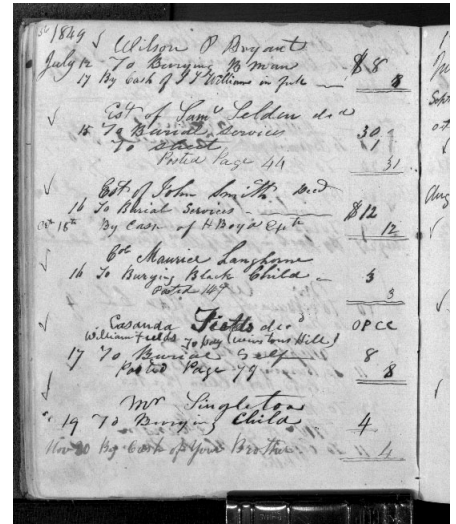 1849
Wilson P Bryant
July 12 To Burying B man $8
17 By Cash of J T Williams in full 8
Est of Saml Selden decd
15 To Burial Services 30
To 1
Posted Page 44 31
Est of John Smith Decd
16 To Burial Services $12
Oct 15th By Cash of H Boyd 12
Col Maurice Langhorne
16 To Burying Black Child 3
Posted 149 3
Casanda Fields decd OPCC
William Fields To pay (Winstons Hill)
17 To Burial Self 8
Posted Page 79 8
Mr Singleton
19 To Burying Child 4
Nov 20 By Cash of your Brother 4